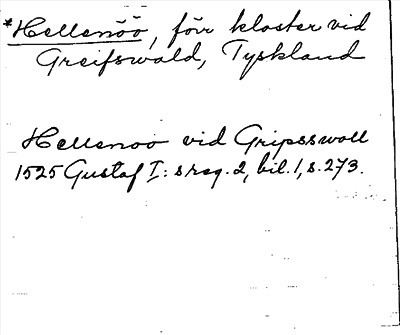 *Hellenöö, förr kloster vid
Greifswald, Tyskland
Hellenoo vid Gripsswoll
1525 Gustaf I:s reg. 2, bil. 1, s. 273.